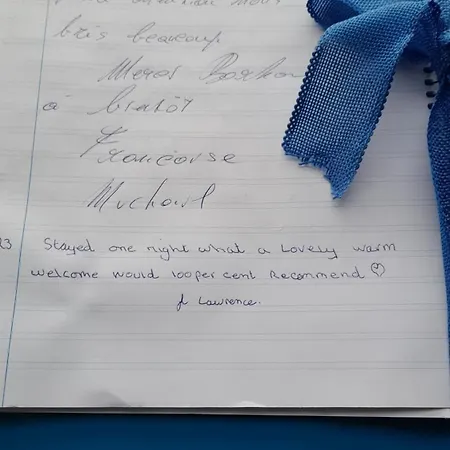 beaucoup
Merci
à bientôt
Francoise
Michael
23 Stayed one night what a Lovely warm
welcome would 100 per cent Recommend ♡
J Lawrence.